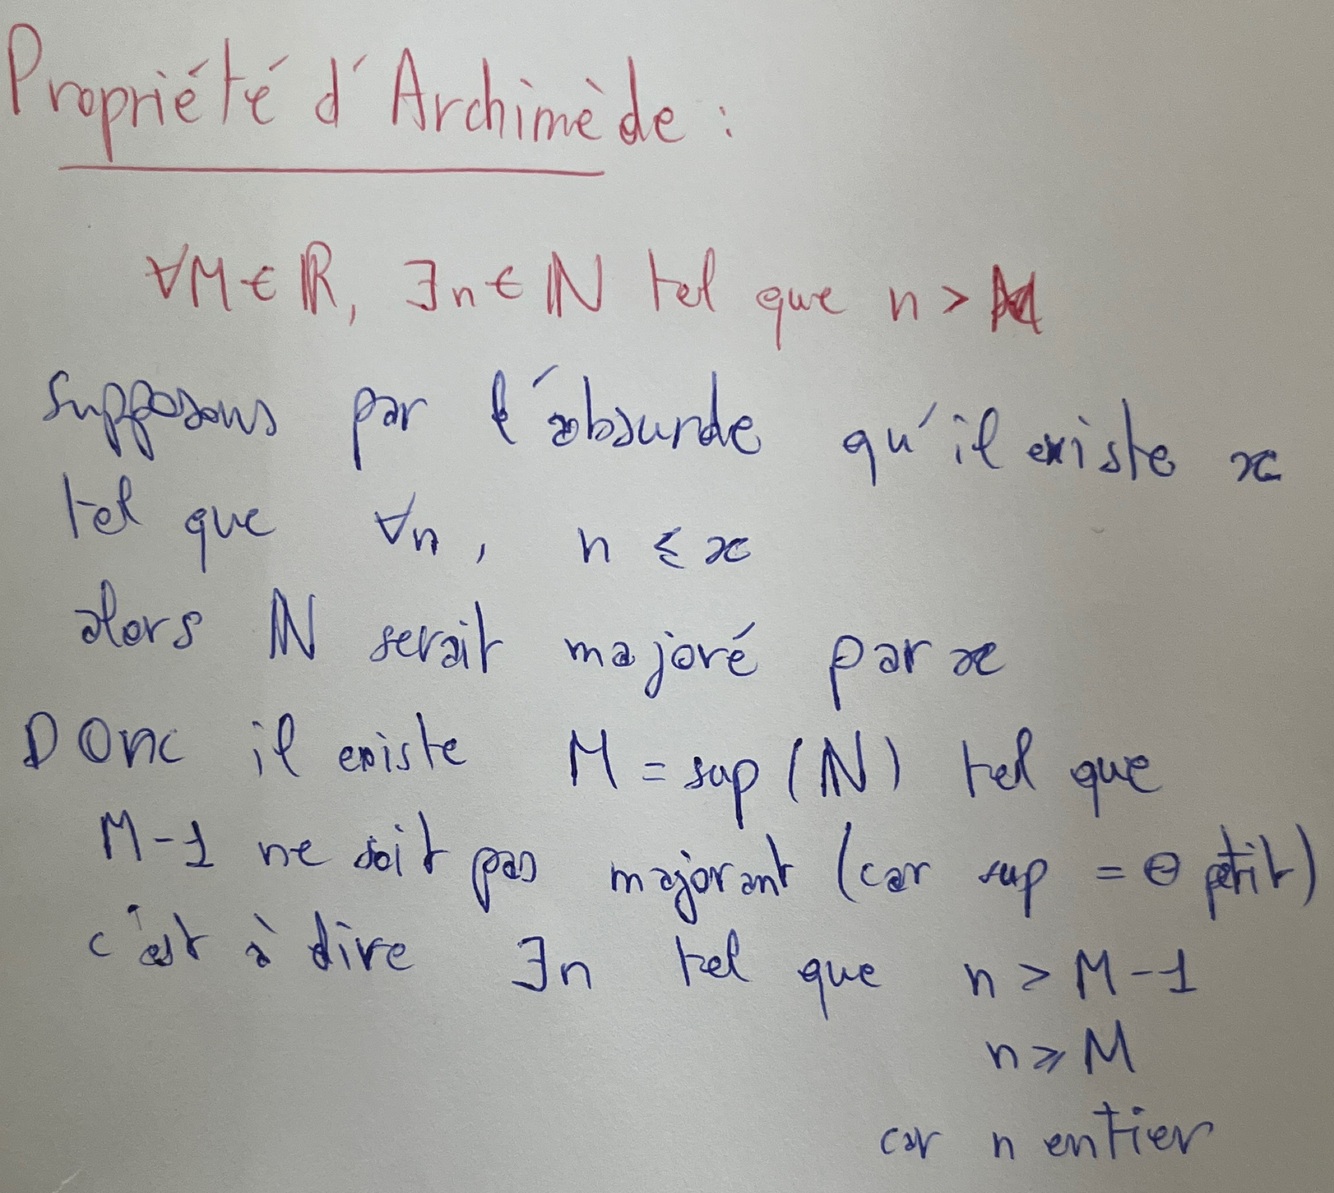 Propriété d'Archimède :
∀M ∈ ℝ, ∃n ∈ ℕ tel que n > M
Supposons par l'absurde qu'il existe x
tel que ∀n, n ≤ x
alors ℕ serait majoré par x
Donc il existe M = sup (ℕ) tel que
M-1 ne soit pas majorant (car sup = ⊖ petit)
c'est à dire ∃n tel que n > M-1
n ⩾ M
car n entier